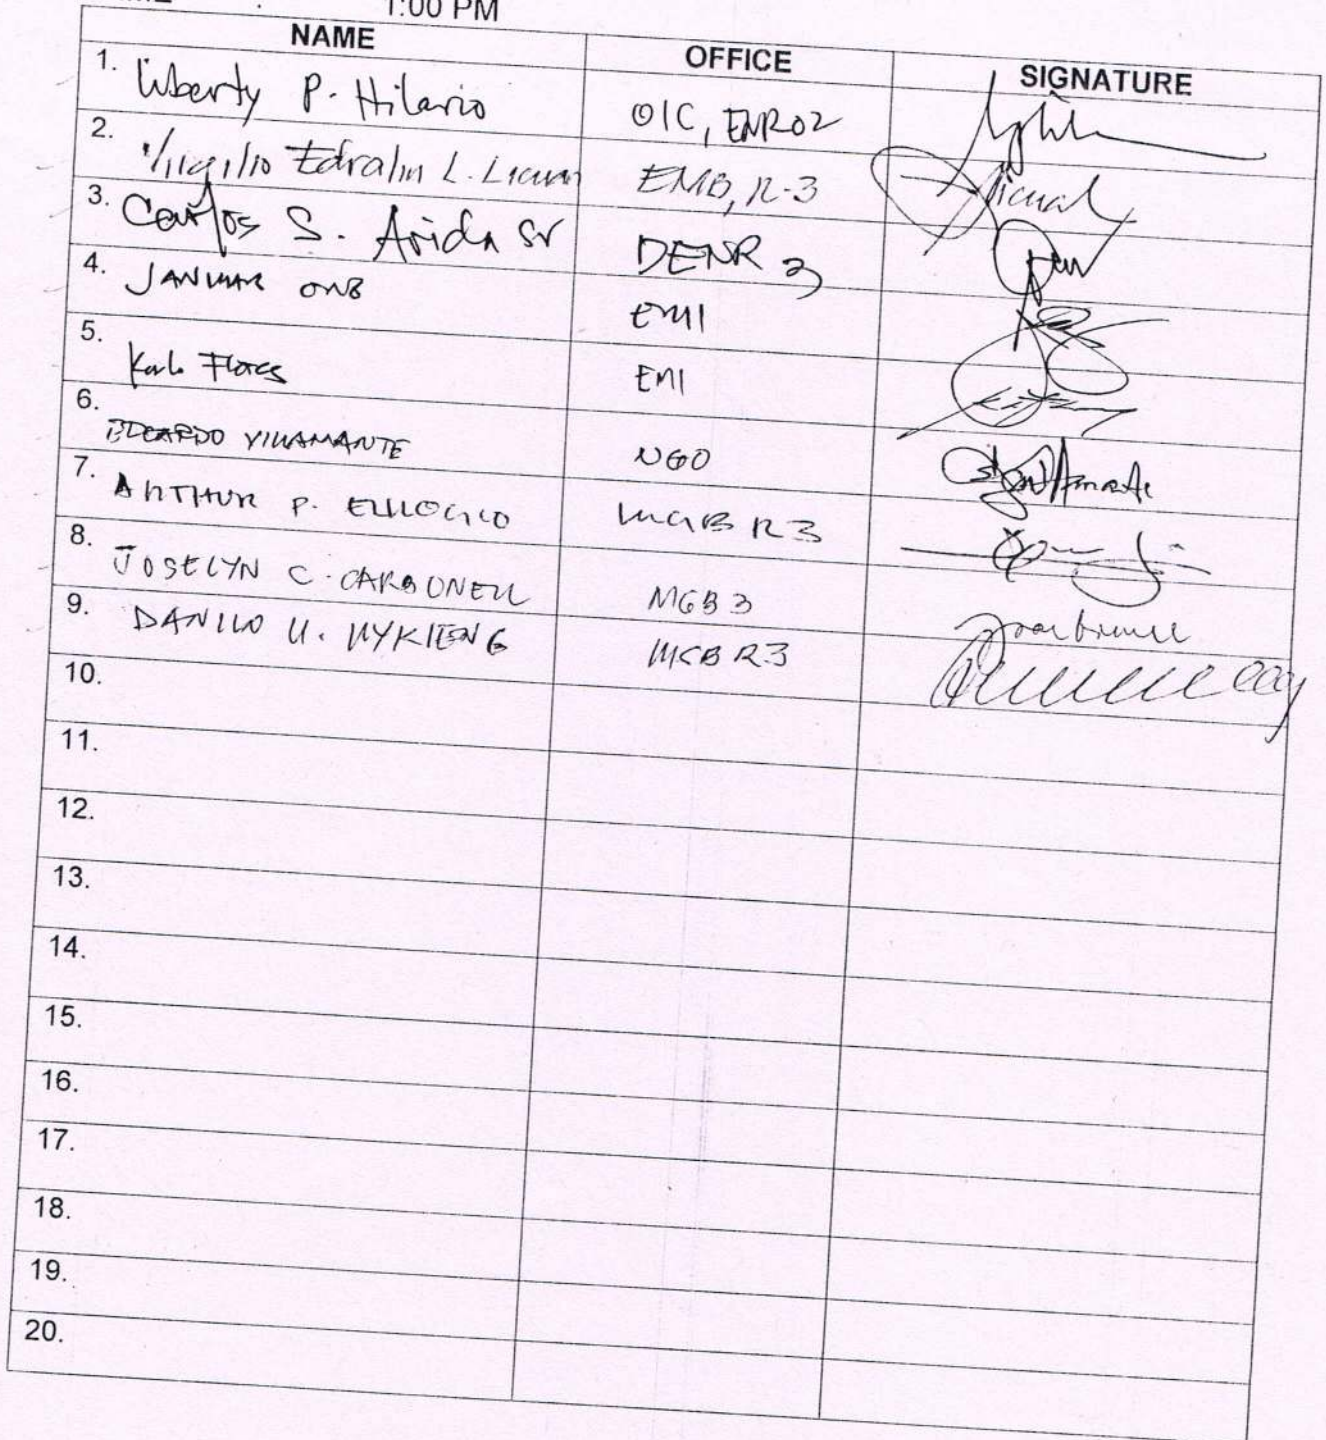 1:00 PM
NAME OFFICE SIGNATURE
1. Liberty P. Hilario OIC, ENRO2
2. Virgilio Edralin L. Licuan EMB, R-3
3. Carlos S. Arida Sr DENR 3
4. JANUAR ONG EMI
5. Karlo Flores EMI
6. EDGARDO VILLAMANTE NGO
7. ARTHUR P. MGB R3
8. JOSELYN C. CARBONELL MGB 3
9. DANILO U. UYKIENG MGB R3
10.
11.
12.
13.
14.
15.
16.
17.
18.
19.
20.